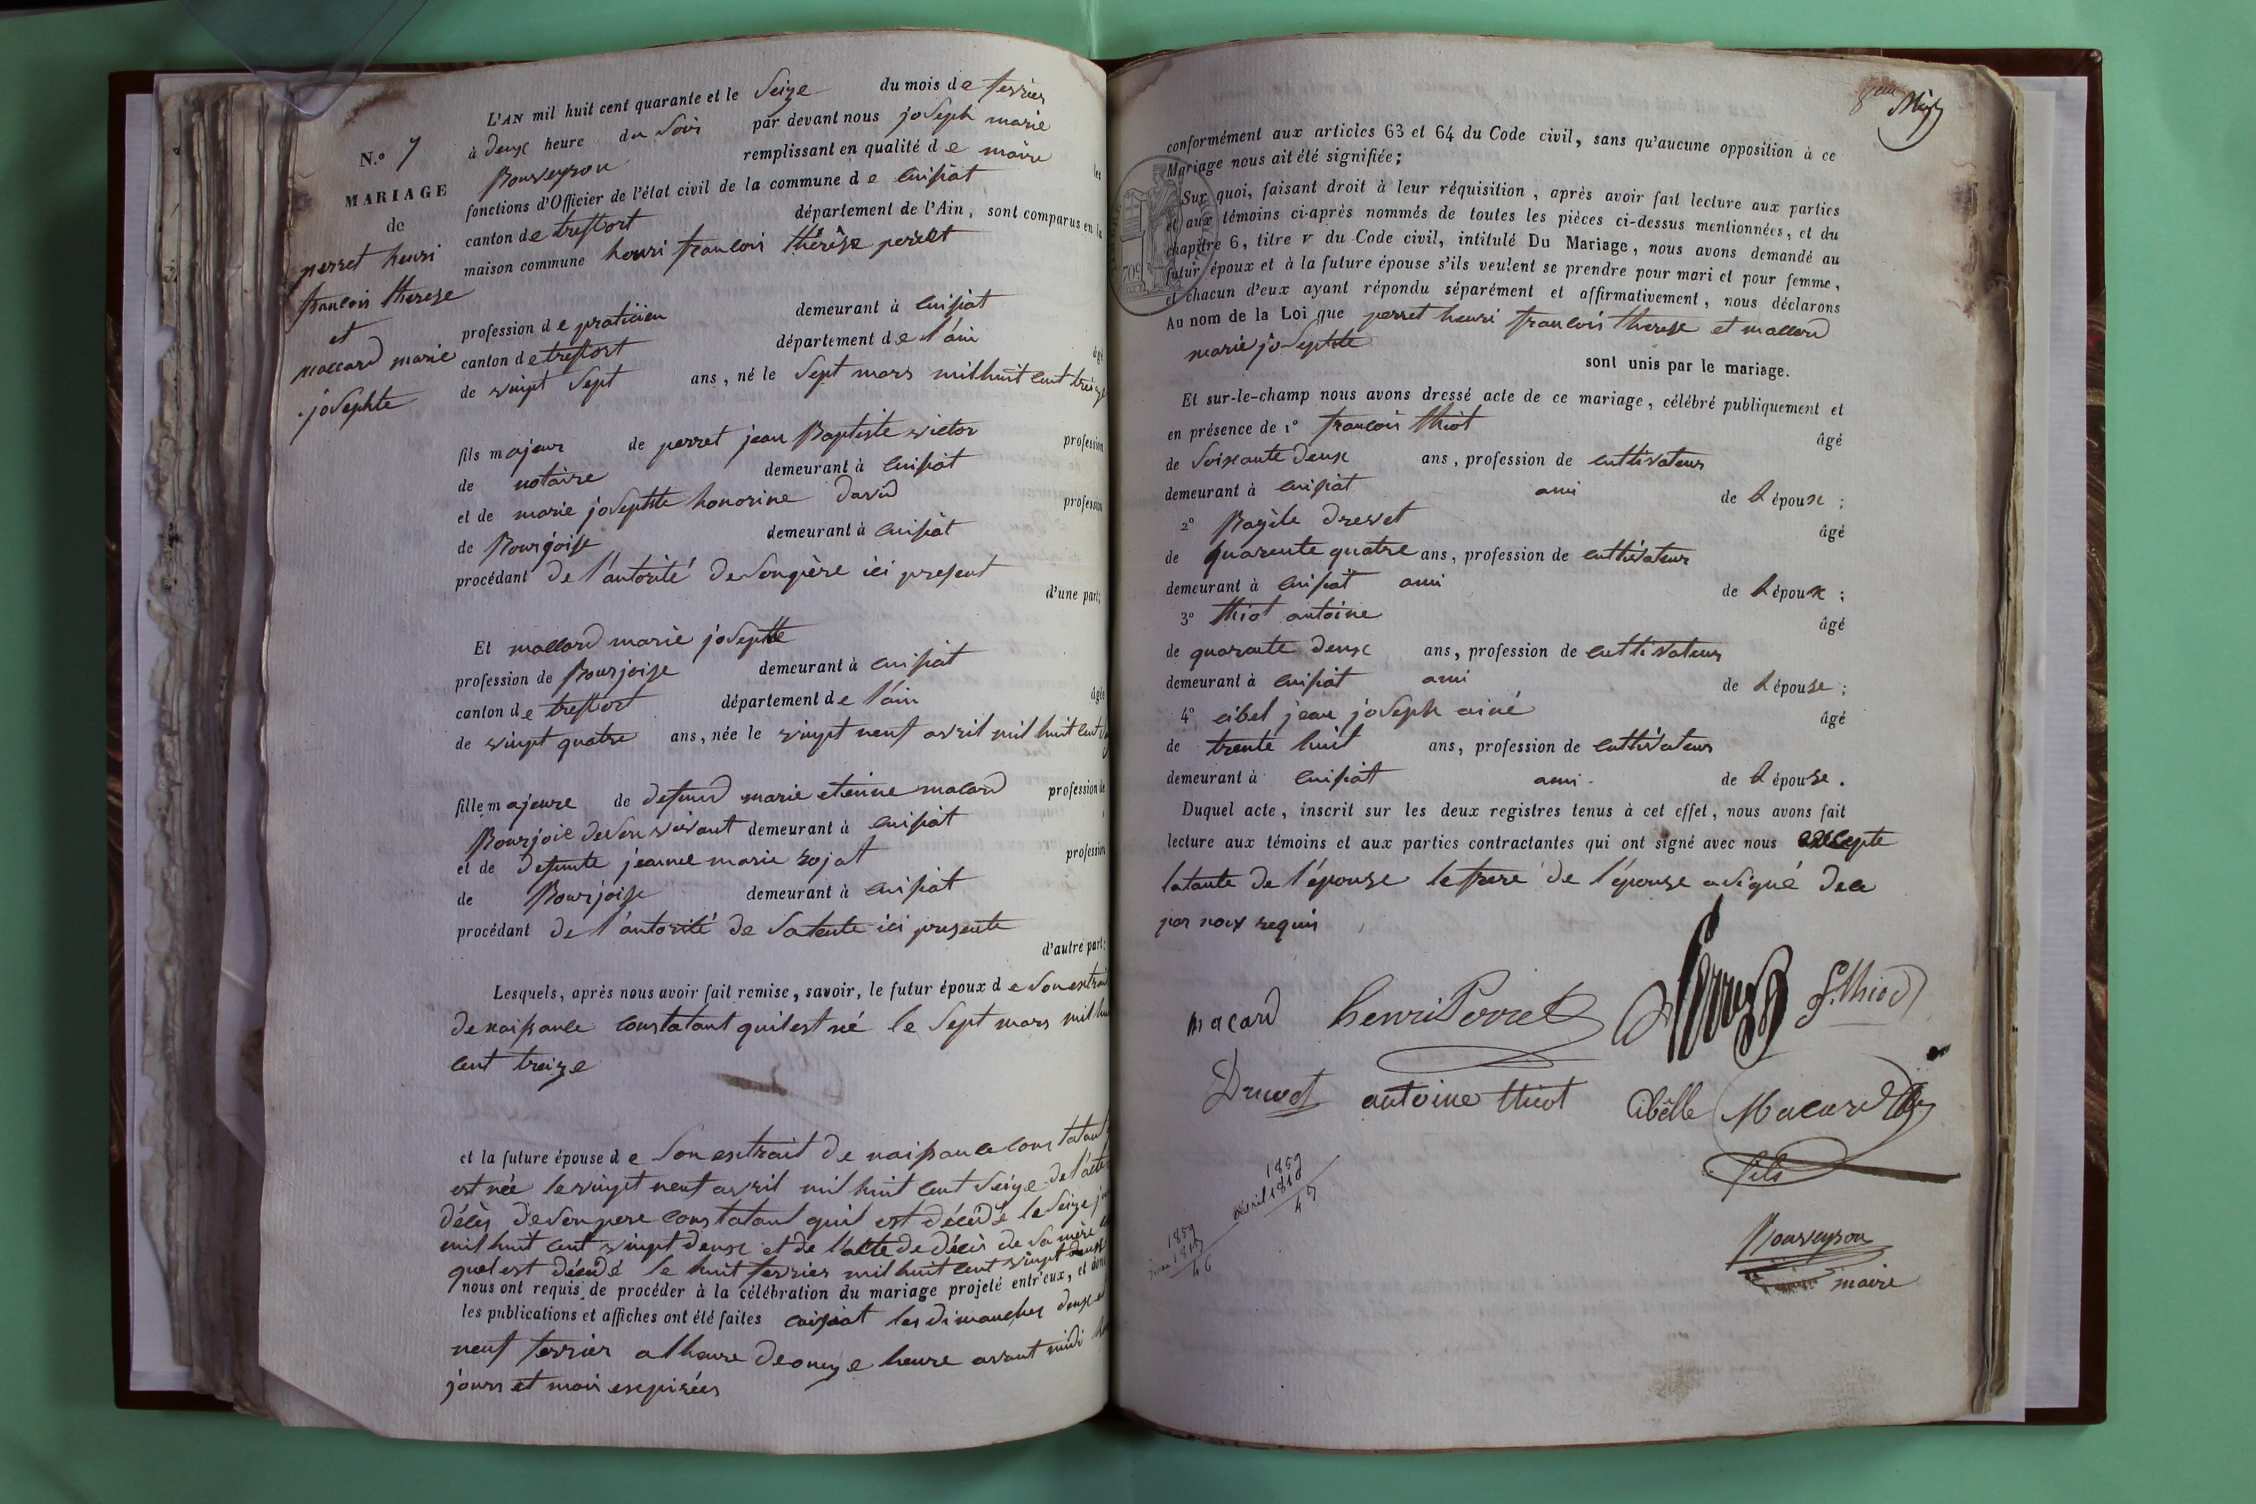 N.o 7
MARIAGE
de
perret henri
francois therese
et
maccard marie
josephte
L'AN mil huit cent quarante et le Seize du mois de fevrier
à deux heure du Soir par devant nous joseph marie
Bouveyron remplissant en qualité de maire les
fonctions d'Officier de l'état civil de la commune de Cuisiat
canton de treffort département de l'Ain, sont comparus en la
maison commune henri francois thérèse perret
profession de praticien demeurant à Cuisiat
canton de treffort département de l'ain âgé
de vingt Sept ans, né le Sept mars mil huit cent treize
fils majeur de perret jean Baptiste victor profession
de notaire demeurant à Cuisiat
et de marie josephte honorine david profession
de Bourgoise demeurant à Cuisiat
procédant de l'autorité de Son père ici present
d'une part;
Et maccard marie josephte
profession de Bourjoise demeurant à Cuisiat
canton de treffort département de l'ain âgée
de vingt quatre ans, née le vingt neuf avril mil huit cent
fille majeure de defund marie etienne macard profession de
Bourjoie de Son vivant demeurant à Cuisiat
et de defunte jeanne marie rojat profession
de Bourjoise demeurant à Cuisiat
procédant de l'autorité de Sa tente ici presente
d'autre part;
Lesquels, après nous avoir fait remise, savoir, le futur époux de Son extrait
de naissance constatant quil est né le Sept mars mil hui
cent treize
et la future épouse de Son extrait de naissance constatant
est née le vingt neuf avril mil huit cent Seize de l'acte
décès de Son pere constatant quil est décédé le Seize
mil huit cent vingt deux et de l'acte de décès de Sa mère
quel est décédé le huit fevrier mil huit cent vingt deux
nous ont requis de procéder à la célébration du mariage projeté entr'eux, et dont
les publications et affiches ont été faites cuisiat les dimanches deux et
neuf fevrier a lheure de onze heure avant midi
jours et mois expirées
8eme
conformément aux articles 63 et 64 du Code civil, sans qu'aucune opposition à ce
Mariage nous ait été signifiée;
Sur quoi, faisant droit à leur réquisition, après avoir fait lecture aux parties
et aux témoins ci-après nommés de toutes les pièces ci-dessus mentionnées, et du
chapitre 6, titre V du Code civil, intitulé Du Mariage, nous avons demandé au
futur époux et à la future épouse s'ils veulent se prendre pour mari et pour femme,
et chacun d'eux ayant répondu séparément et affirmativement, nous déclarons
Au nom de la Loi que perret henri francois therese et maccard
marie josephte
sont unis par le mariage.
Et sur-le-champ nous avons dressé acte de ce mariage, célébré publiquement et
en présence de 1° francois thiot âgé
de Soixante deux ans, profession de cultivateur
demeurant à Cuisiat ami de l'époux;
2° Bazile drevet âgé
de quarente quatre ans, profession de cultivateur
demeurant à Cuisiat ami de l'époux;
3° thiot antoine âgé
de quarante deux ans, profession de cultivateur
demeurant à Cuisiat ami de l'épouse;
4° cibel jean joseph ainé âgé
de trente huit ans, profession de cultivateur
demeurant à Cuisiat ami de l'épouse.
Duquel acte, inscrit sur les deux registres tenus à cet effet, nous avons fait
lecture aux témoins et aux parties contractantes qui ont signé avec nous excepte
la tante de l'épouse le frere de l'épouse a signé de ce
par nous requis
macard henri Perret Perret f. thiod
Druvet antoine thiot Cibêlle Macard
fils
Bouveyron
maire
1859
1816
1859
1813
46